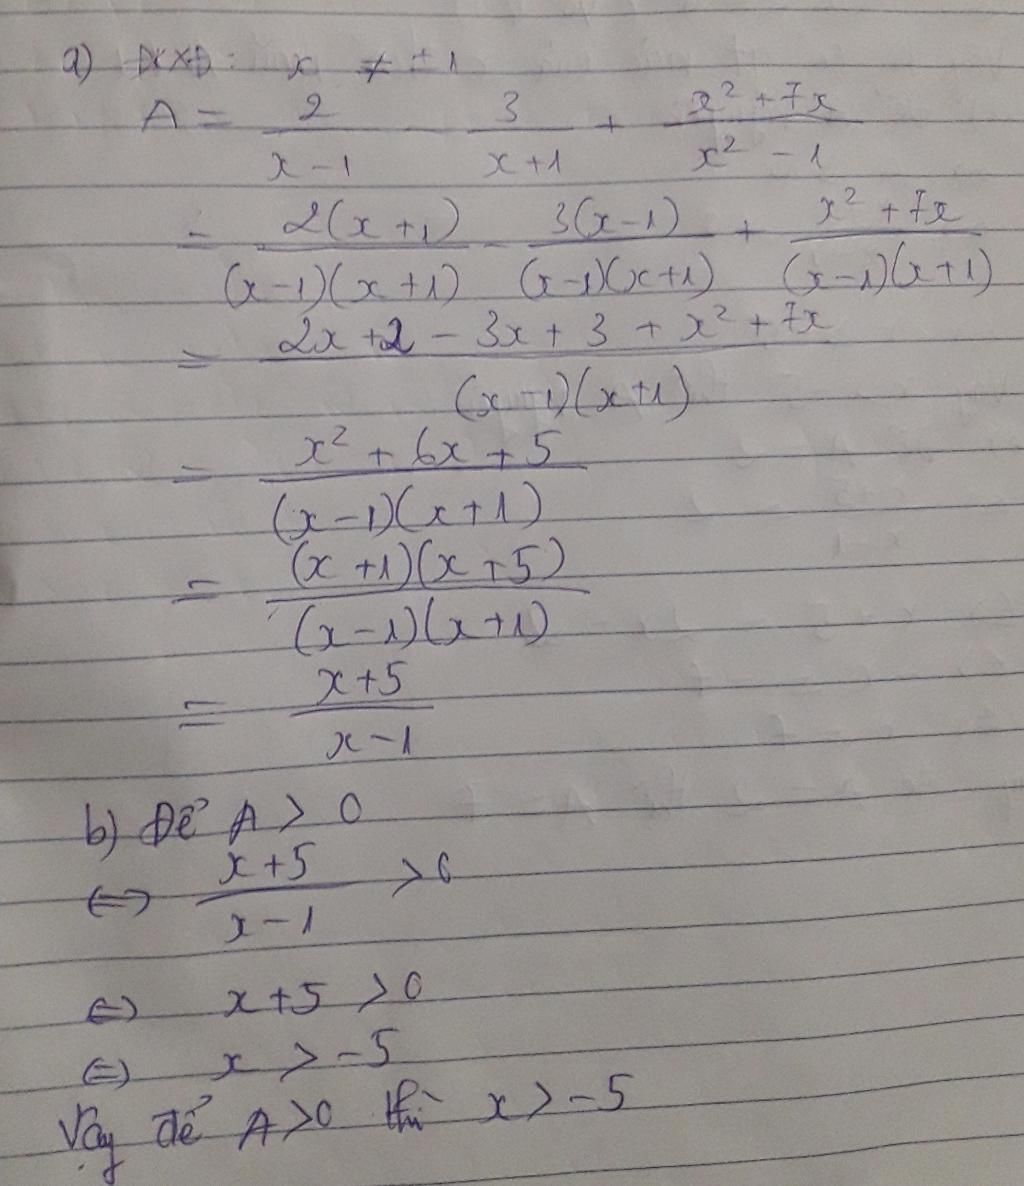 a) ĐKXĐ: x ≠ ±1
A = 2/(x-1) - 3/(x+1) + (x² + 7x)/(x² - 1)
= 2(x+1)/((x-1)(x+1)) - 3(x-1)/((x-1)(x+1)) + (x² + 7x)/((x-1)(x+1))
= (2x + 2 - 3x + 3 + x² + 7x)/((x-1)(x+1))
= (x² + 6x + 5)/((x-1)(x+1))
= ((x+1)(x+5))/((x-1)(x+1))
= (x+5)/(x-1)
b) Để A > 0
⇔ (x+5)/(x-1) > 0
⇔ x+5 > 0
⇔ x > -5
Vậy để A>0 thì x > -5